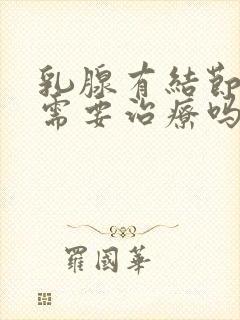 乳腺有結節
需要治療吗
羅國華